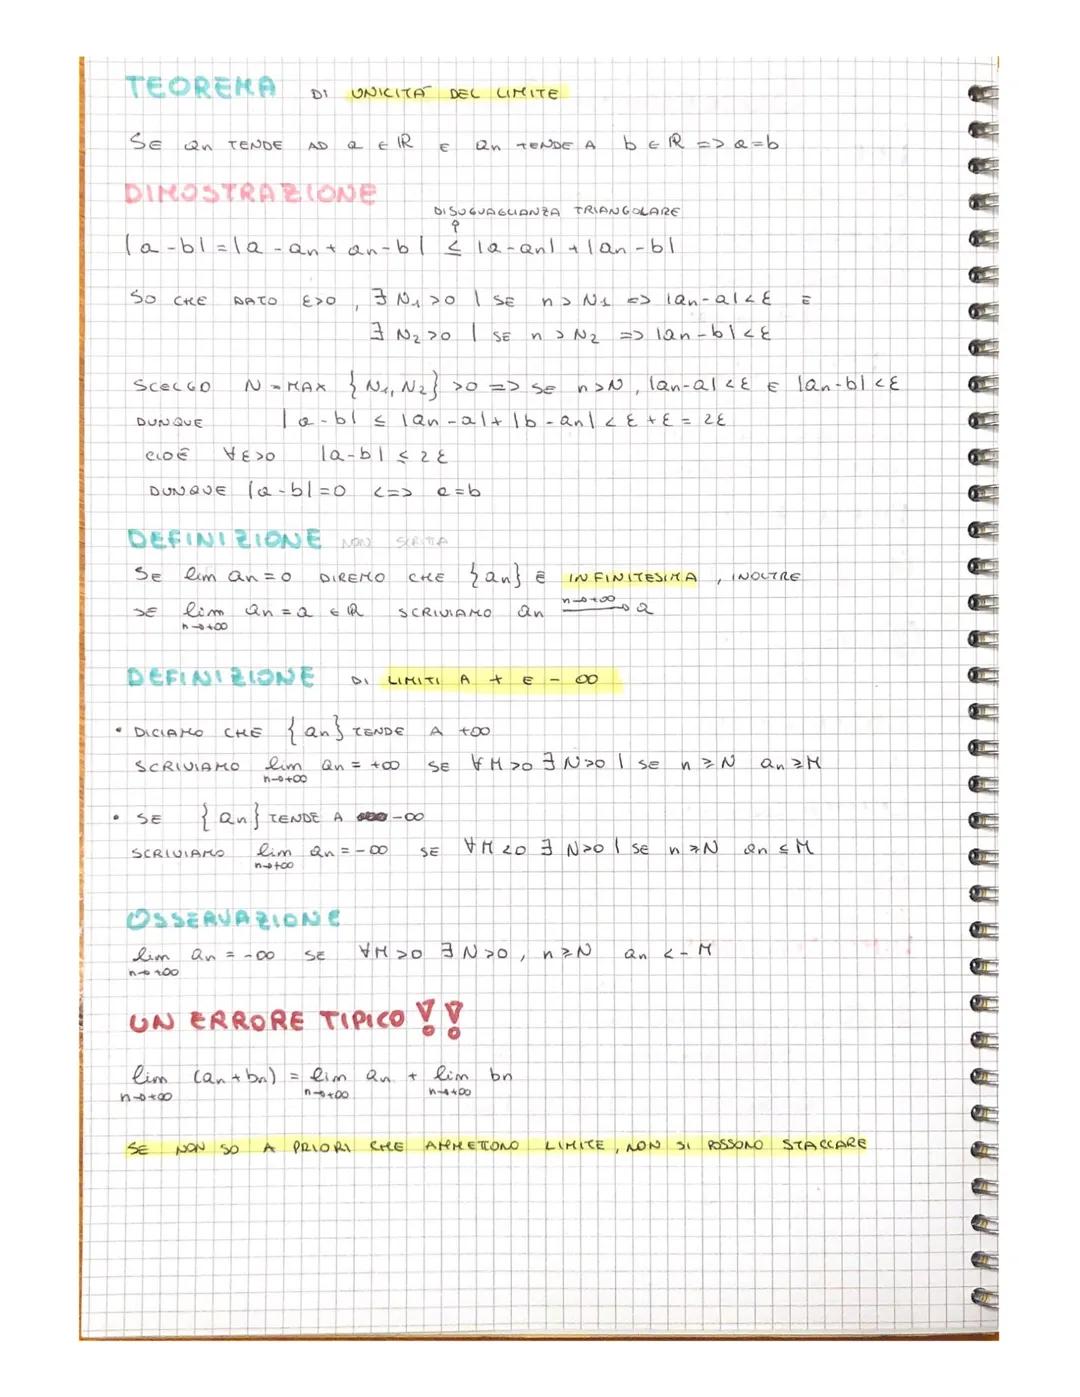 TEOREMA DI UNICITA' DEL LIMITE
SE an TENDE AD a ∈ ℝ E an TENDE A b ∈ ℝ => a=b
DIMOSTRAZIONE
DISUGUAGLIANZA TRIANGOLARE
|a-b|=|a-an+an-b| ≤ |a-an|+|an-b|
SO CHE DATO ε>0, ∃ N₁>0 | SE n>N₁ => |an-a|<ε E
∃ N₂>0 | SE n>N₂ => |an-b|<ε
SCELGO N=MAX {N₁,N₂}>0 => SE n>N, |an-a|<ε E |an-b|<ε
DUNQUE |a-b| ≤ |an-a|+|b-an|<ε+ε=2ε
CIOÈ ∀ε>0 |a-b| ≤ 2ε
DUNQUE |a-b|=0 <=> a=b
DEFINIZIONE NON SCRITTA
SE lim an=0 DIREMO CHE {an} È INFINITESIMA, INOLTRE
SE lim an=a ∈ ℝ SCRIVIAMO an ⟶ a
n→+∞ n→+∞
DEFINIZIONE DI LIMITI A + E - ∞
• DICIAMO CHE {an} TENDE A +∞
SCRIVIAMO lim an = +∞ SE ∀M>0 ∃N>0 | SE n≥N an≥M
n→+∞
• SE {an} TENDE A -∞
SCRIVIAMO lim an=-∞ SE ∀M<0 ∃ N>0 | SE n≥N an≤M
n→+∞
OSSERVAZIONE
lim an = -∞ SE ∀M>0 ∃N>0, n≥N an <-M
n→+∞
UN ERRORE TIPICO !!
lim (an+bn) = lim an + lim bn
n→+∞ n→+∞ n→+∞
SE NON SO A PRIORI CHE AMMETTONO LIMITE, NON SI POSSONO STACCARE